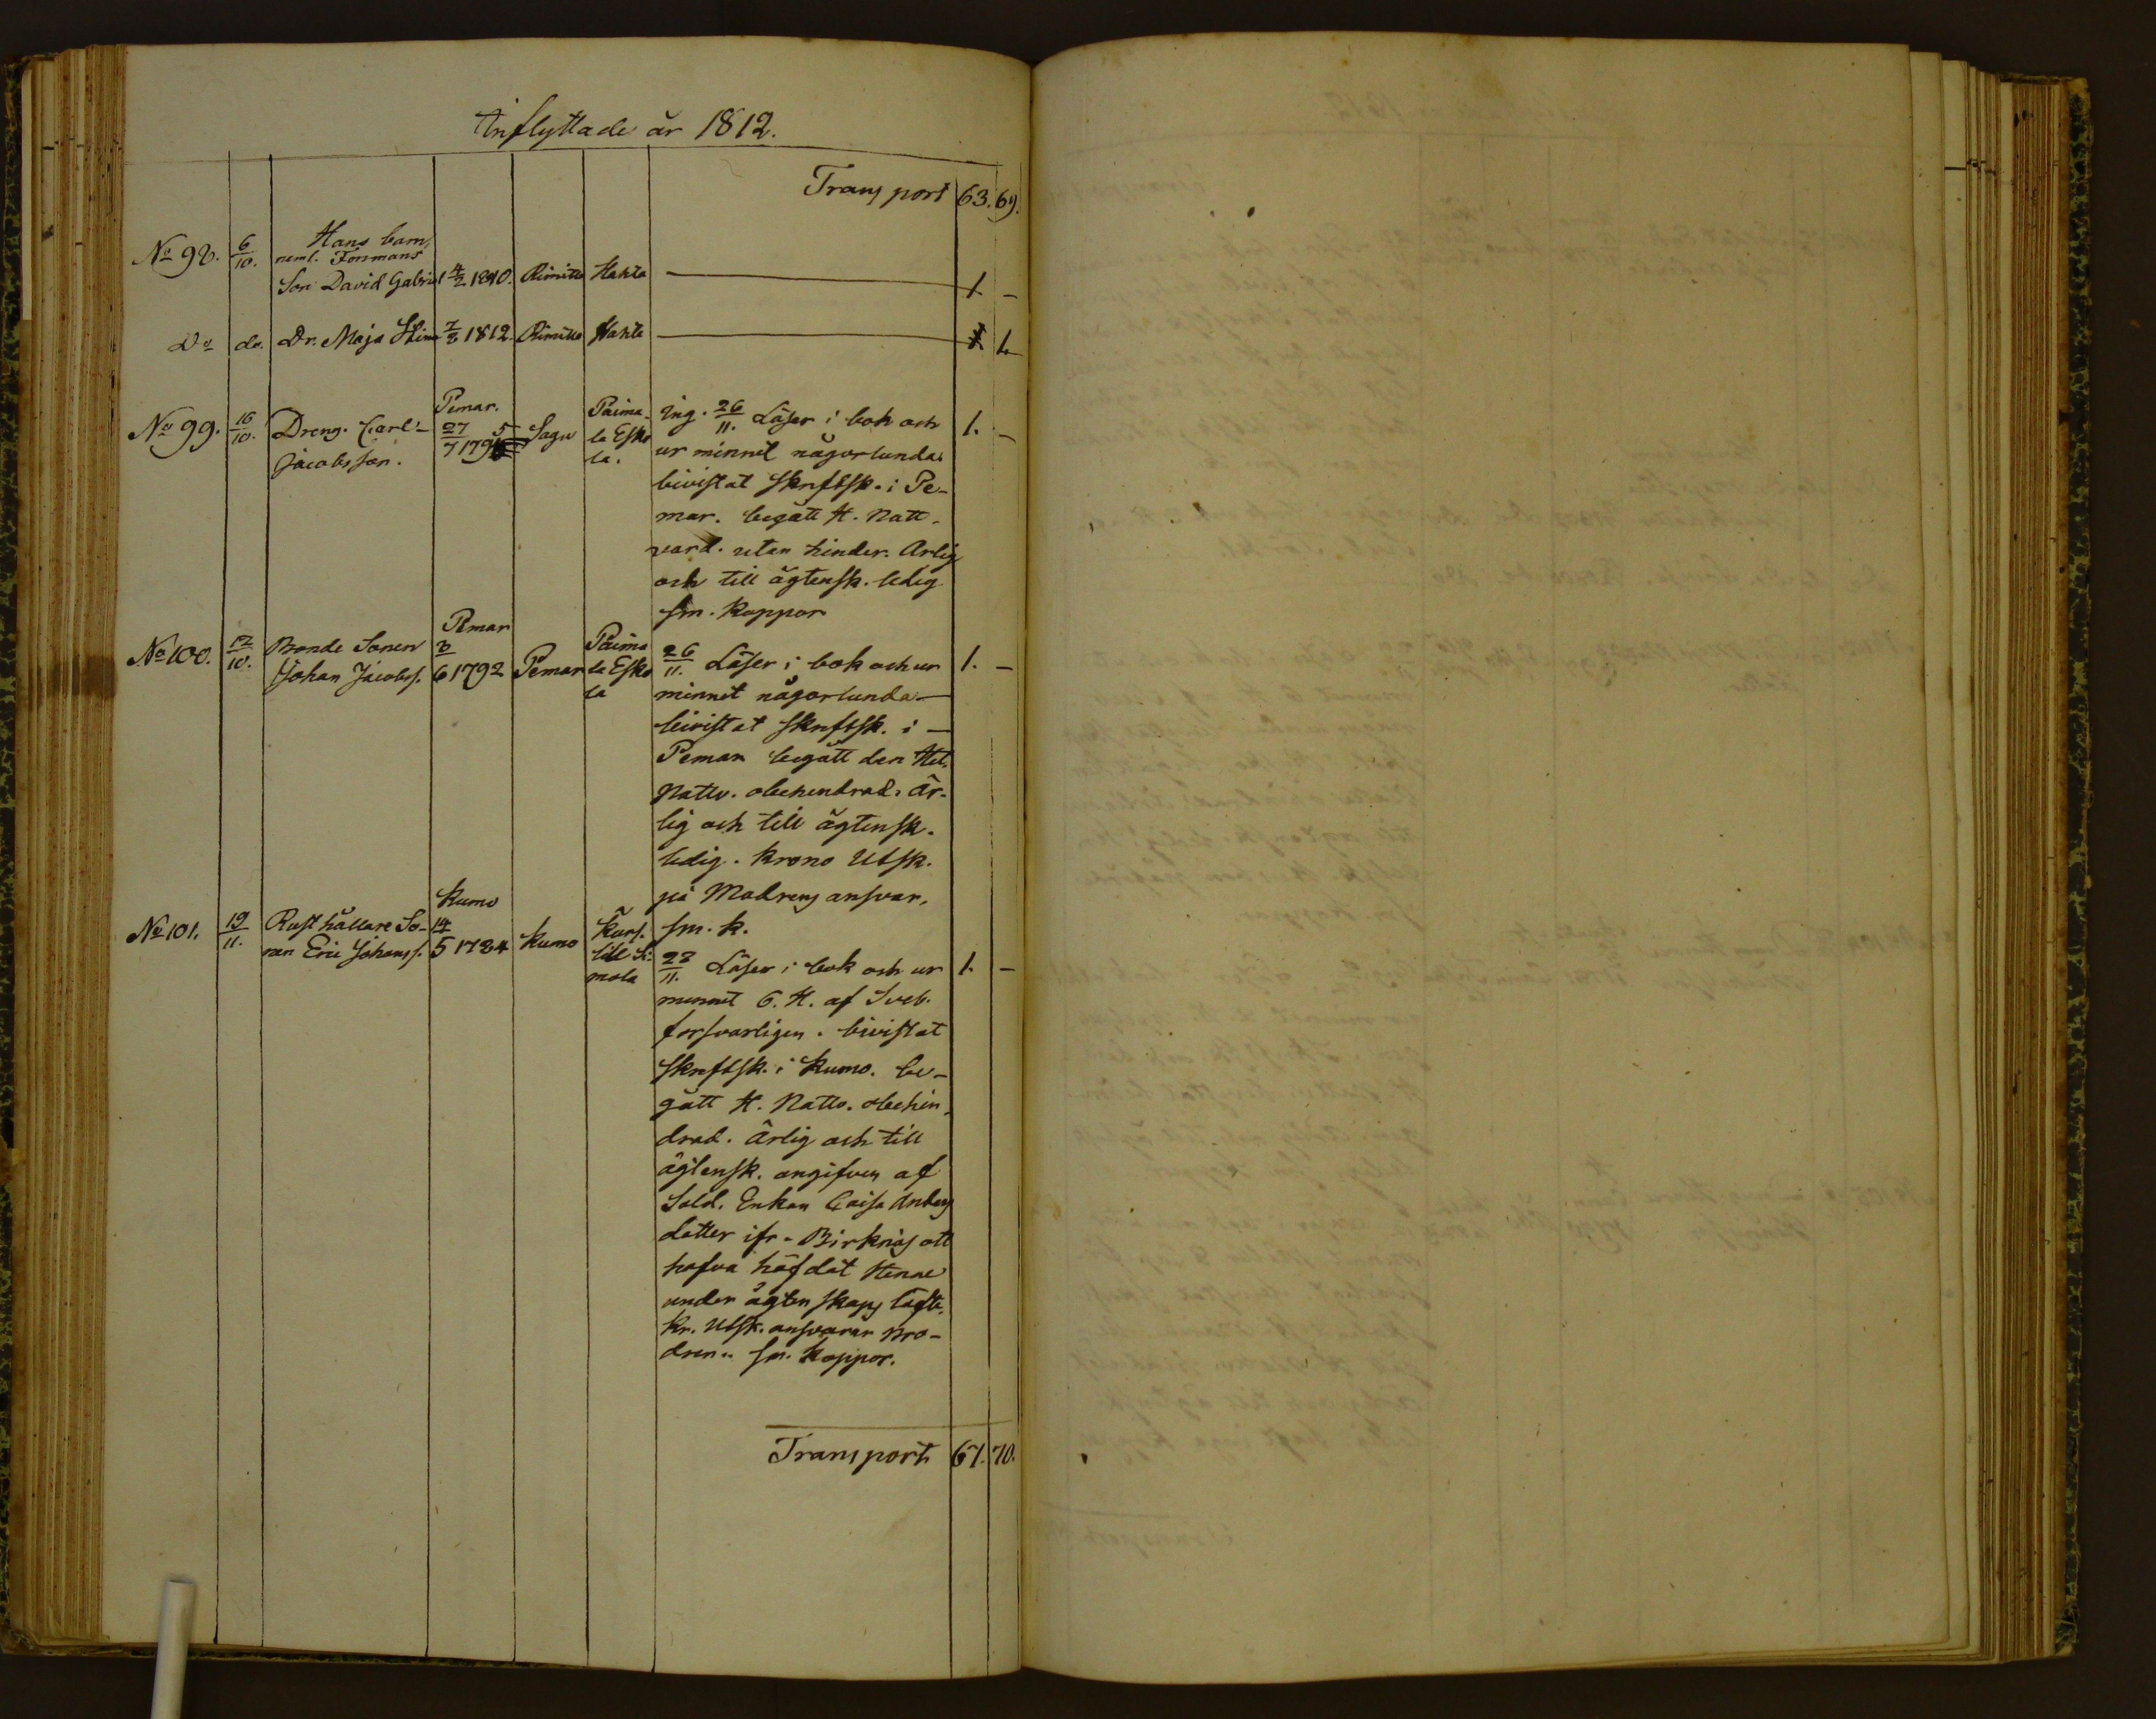 Inflyttade år 1812.
Transport 63. 69.
No 98. 6/10. Hans barn,
neml. Formans
Son David Gabriel 4/2 1810. Rimitto Hahta — 1. —
Do do. Dr. Maja Stina 7/3 1812. Rimitto Hahta — 1.
No 99. 16/10. Dreng. Carl Pemar. 27/7 1795 Sagu Paima- ing. 26/11. Läser i bok och 1. —
Jacobsson. la Esko ur minnet någorlunda.
la. bivistat Skriftsk. i Pe-
mar. begått H. Natt-
vard. utan hinder. Ärlig
och till ägtensk. ledig
sm. koppor
No 100. 17/10. Bonde Sonen Pemar Paima
Johan Jacobss. 3/6 1792 Pemar la Esko 26/11. Läser i bok och ur 1. —
la minnet någorlunda —
bivistat skriftsk. i —
Pemar begått den Hel.
Nattv. obehindrad. Är-
lig och till ägtensk.
ledig. krono Utsk.
på Modrens ansvar,
sm. k.
No 101. 19/11. Rusthållare So- Kumo
nen Eric Johanss. 14/5 1784 Kumo Kärs.
till 23/11. Läser i bok och ur 1. —
mola minnet 6. H. af Sveb.
forsvarligen. bivistat
skriftsk. i Kumo. be-
gått H. Nattv. obehin-
drad. Ärlig och till
ägtensk. angifven af
Sold. Enkan Caisa
dotter ifr. Birknäs att
hafva häfdat Henne
under ägtenskaps löfte.
Kr. Utsk. ansvarar Bro-
dren. sm. koppor.
Transport 67. 70.